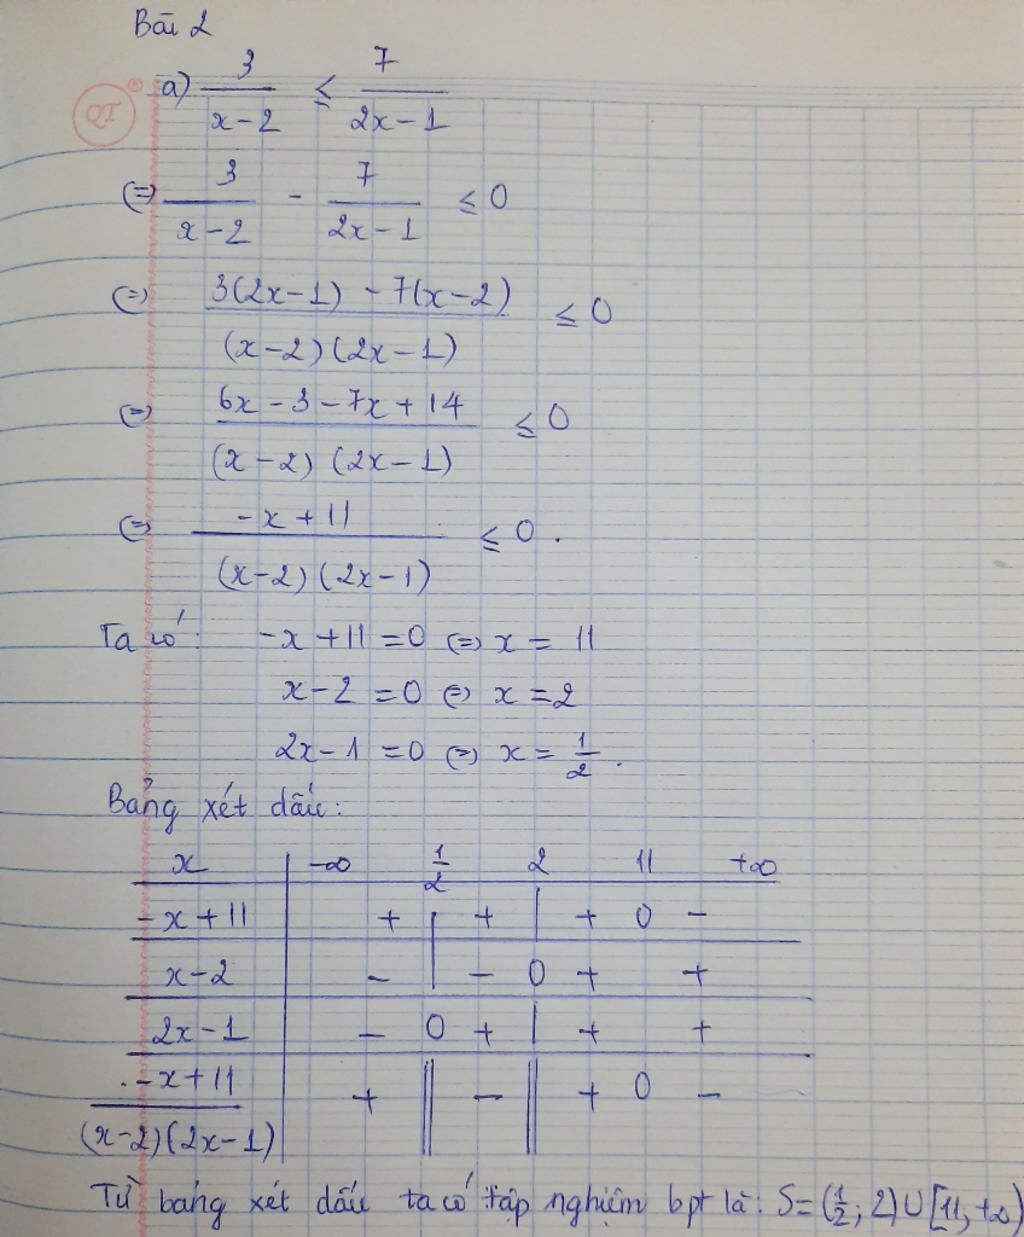 Bài 2
QT
a) 3/(x-2) ≤ 7/(2x-1)
(=) 3/(x-2) - 7/(2x-1) ≤ 0
(=) (3(2x-1) - 7(x-2))/((x-2)(2x-1)) ≤ 0
(=) (6x-3-7x+14)/((x-2)(2x-1)) ≤ 0
(=) (-x+11)/((x-2)(2x-1)) ≤ 0.
Ta có: -x+11=0 (=) x = 11
x-2=0 (=) x=2
2x-1=0 (=) x=1/2.
Bảng xét dấu:
x | -∞ 1/2 2 11 +∞
-x+11 | + | + | + 0 -
x-2 | - | - 0 + +
2x-1 | - 0 + | + +
(-x+11)/((x-2)(2x-1)) | + || - || + 0 -
Từ bảng xét dấu ta có tập nghiệm bpt là: S=(1/2; 2)∪[11; +∞)